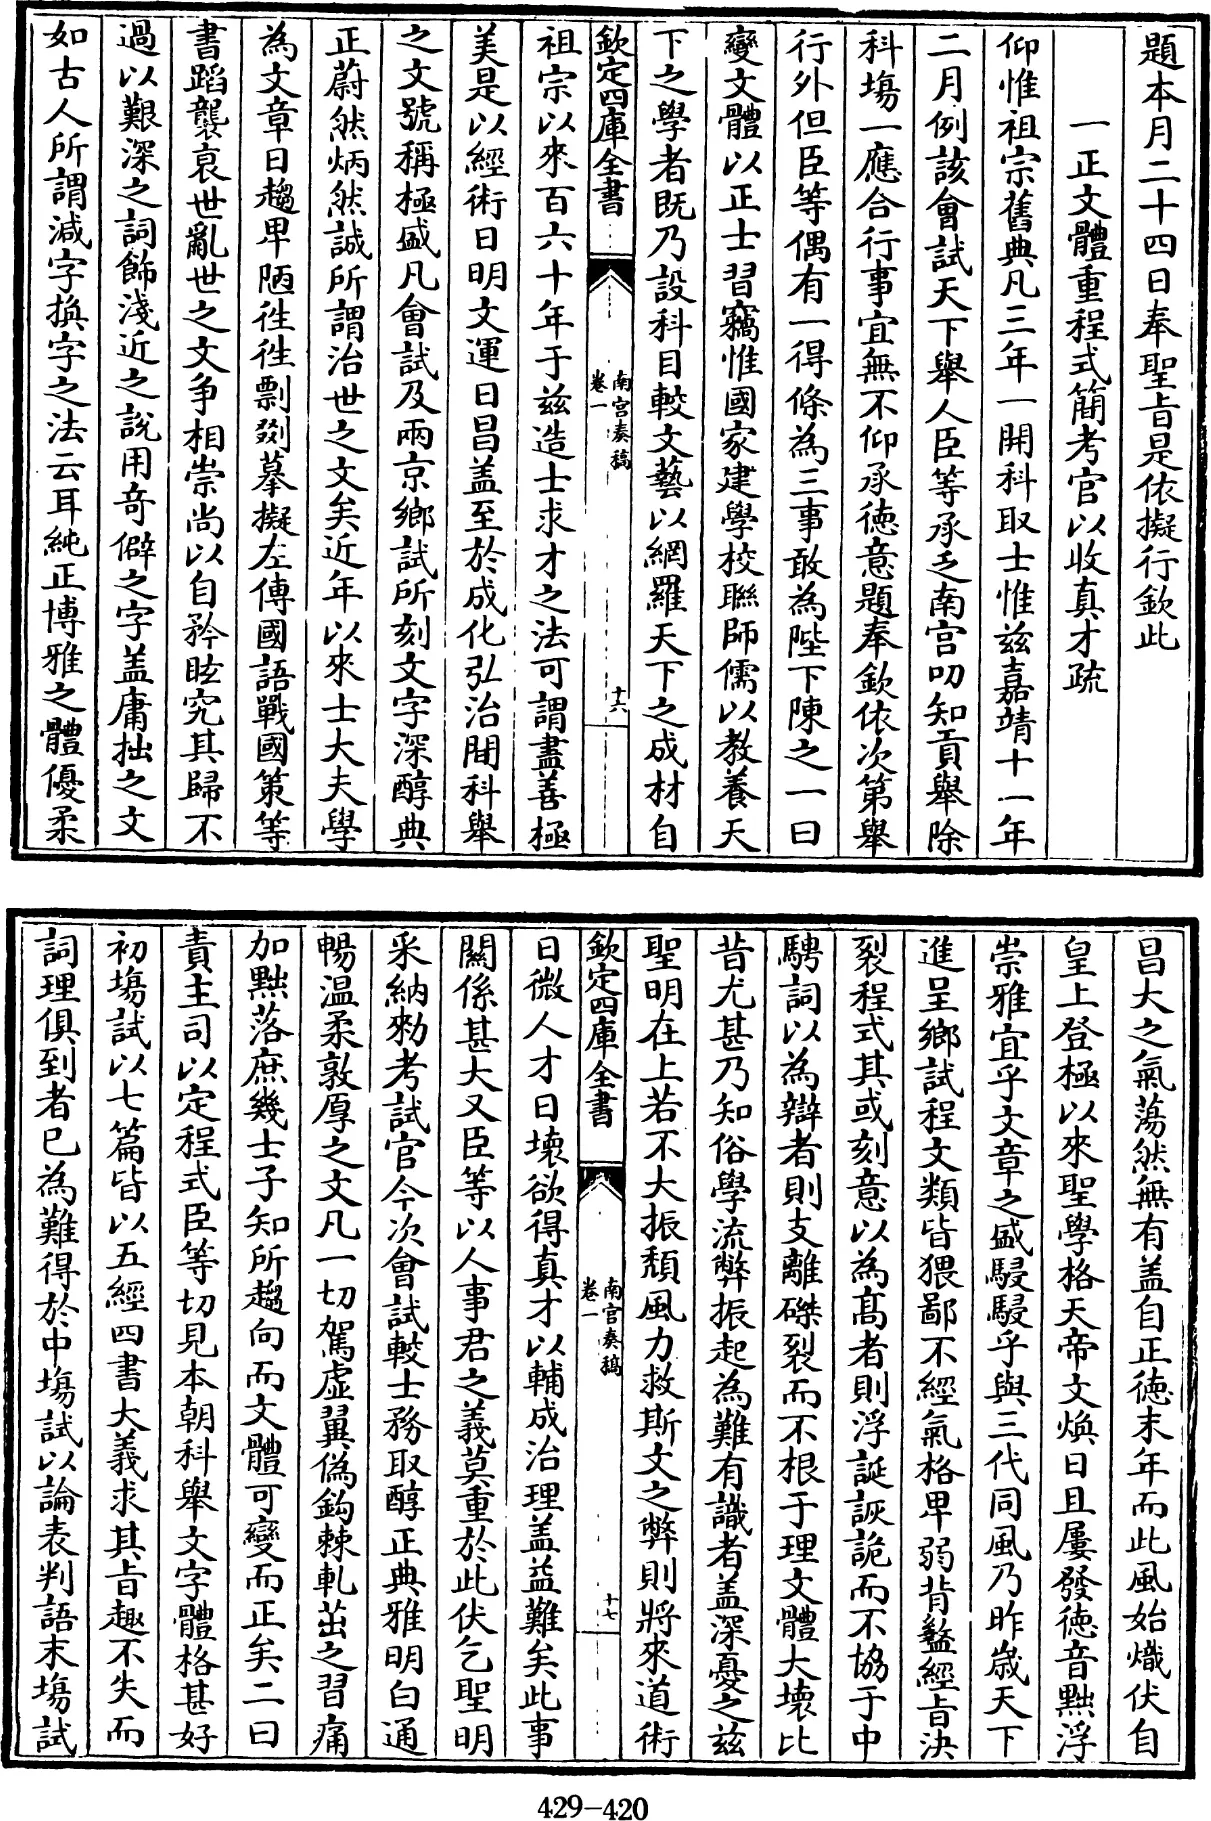 題本月二十四日奉聖旨是依擬行欽此
一正文體重程式簡考官以收真才疏
仰惟祖宗舊典凡三年一開科取士惟兹嘉靖十一年
二月例該會試天下舉人臣等承乏南宫叨知貢舉除
科場一應合行事宜無不仰承德意題奉欽依次第舉
行外但臣等偶有一得條為三事敢為陛下陳之一曰
變文體以正士習竊惟國家建學校聯師儒以教養天
下之學者既乃設科目較文藝以網羅天下之成材自
欽定四庫全書
南宫奏稿
卷一
十六
祖宗以來百六十年于兹造士求才之法可謂盡善極
美是以經術日明文運日昌盖至於成化弘治間科舉
之文號稱極盛凡會試及兩京鄉試所刻文字深醇典
正蔚然炳然誠所謂治世之文矣近年以來士大夫學
為文章日趨卑陋往往剽剟摹擬左傳國語戰國策等
書蹈襲哀世亂世之文爭相崇尚以自矜眩究其歸不
過以艱深之詞飾淺近之說用奇僻之字盖庸拙之文
如古人所謂減字換字之法云耳純正博雅之體優柔
昌大之氣蕩然無有盖自正德末年而此風始熾伏自
皇上登極以來聖學格天帝文煥日且屢發德音黜浮
崇雅宜乎文章之盛駸駸乎與三代同風乃昨歲天下
進呈鄉試程文類皆猥鄙不經氣格卑弱背盭經旨決
裂程式其或刻意以為髙者則浮誕詼詭而不協于中
騁詞以為辯者則支離磔裂而不根于理文體大壞比
昔尤甚乃知俗學流弊振起為難有識者盖深憂之兹
聖明在上若不大振頽風力救斯文之弊則將來道術
欽定四庫全書
南宫奏稿
卷一
十七
日微人才日壞欲得真才以輔成治理盖益難矣此事
關係甚大又臣等以人事君之義莫重於此伏乞聖明
采納勑考試官今次會試較士務取醇正典雅明白通
暢温柔敦厚之文凡一切駕虚翼偽鈎棘軋茁之習痛
加黜落庶幾士子知所趨向而文體可變而正矣二曰
責主司以定程式臣等切見本朝科舉文字體格甚好
初場試以七篇皆以五經四書大義求其旨趣不失而
詞理俱到者已為難得於中場試以論表判語末場試
429—420